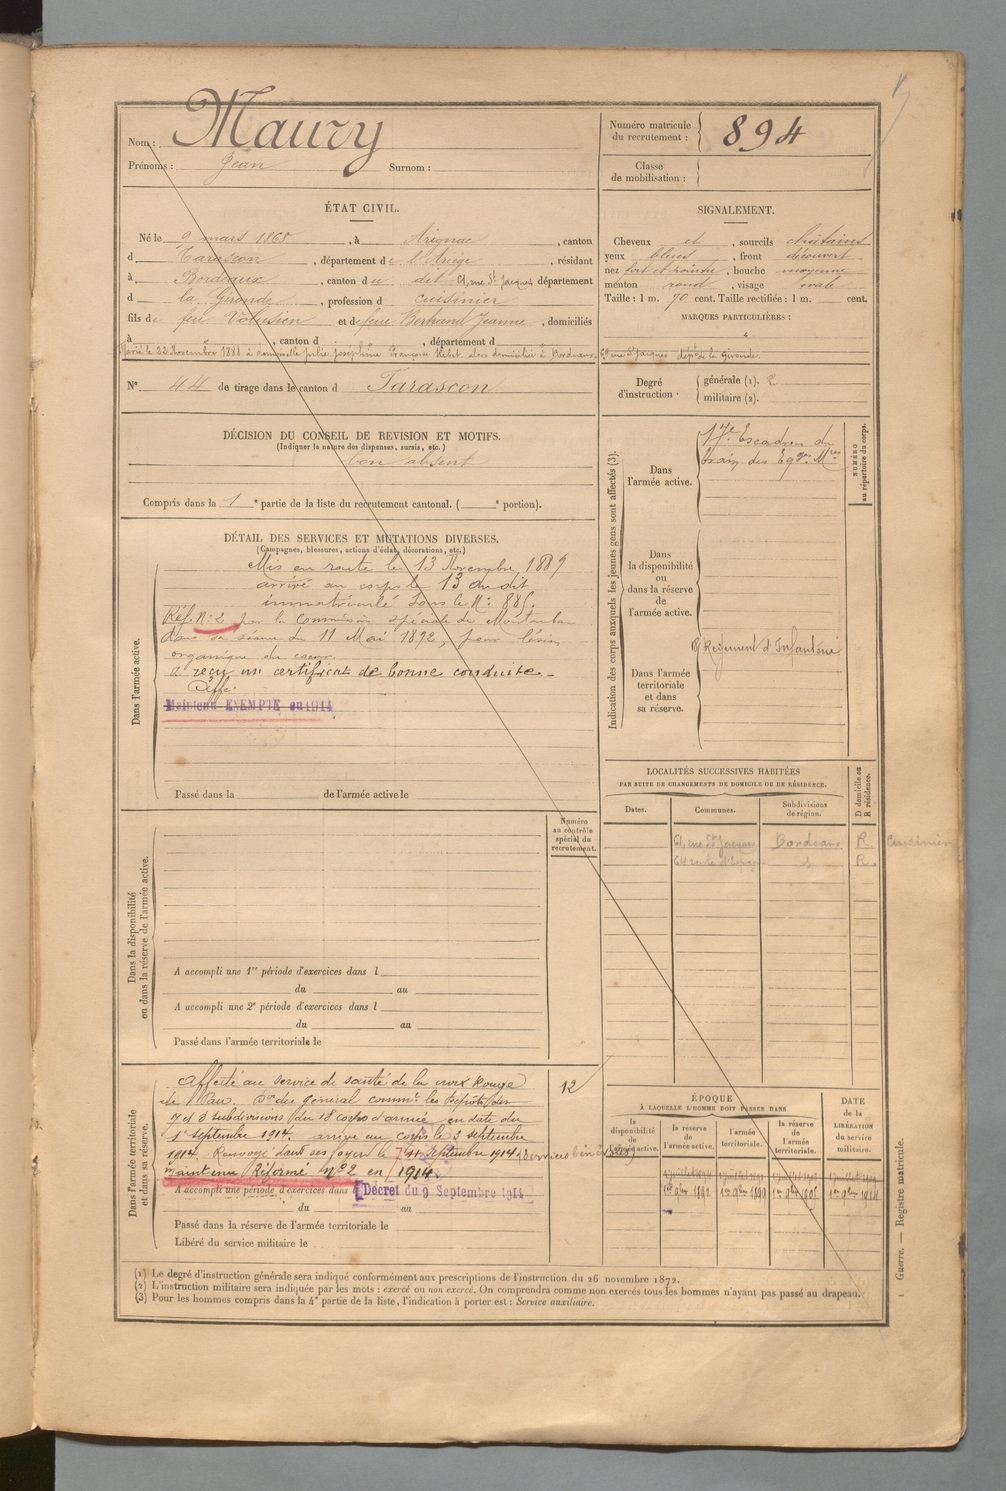 Nom : Maury
Prénoms : Jean Surnom :
Numéro matricule du recrutement : 894
Classe de mobilisation :
ÉTAT CIVIL.
Né le 9 mars 1868, à Arignac, canton
d Tarascon, département de l'Ariège, résidant
à Bordeaux, canton du dit 61, rue St Jacques département
d la Gironde, profession d cuisinier
fils de feu Volusien et de feue Bertrand Jeanne, domiciliés
à , canton d , département d
Marié le 22 Novembre 1888 à demoiselle Julie Joséphine Françoise , alors domicilié à Bordeaux, 61 rue St Jacques dépt de la Gironde.
N° 44 de tirage dans le canton d Tarascon
SIGNALEMENT.
Cheveux et , sourcils châtains
yeux bleus, front découvert
nez fort et pointu, bouche moyenne
menton rond, visage ovale
Taille : 1 m. 70 cent. Taille rectifiée : 1 m. cent.
MARQUES PARTICULIÈRES :
Degré d'instruction
générale (1). 2
militaire (2).
DÉCISION DU CONSEIL DE REVISION ET MOTIFS.
(Indiquer la nature des dispenses, sursis, etc.)
bon absent
Compris dans la 1e partie de la liste du recrutement cantonal. ( e portion).
DÉTAIL DES SERVICES ET MUTATIONS DIVERSES.
(Campagnes, blessures, actions d'éclat, décorations, etc.)
Dans l'armée active.
Mis en route le 13 Novembre 1889
arrivé au corps le 13 du dit
immatriculé sous le N° 885.
Réf. N° 2 par la Commission spéciale de Montauban
dans sa séance du 11 Mai 1892, pour lésion
organique du coeur
a reçu un certificat de bonne conduite.
Maintenu EXEMPTÉ en 1914
Passé dans la de l'armée active le
Dans la disponibilité ou dans la réserve de l'armée active.
Numéro au contrôle spécial du recrutement.
A accompli une 1re période d'exercices dans l
du au
A accompli une 2e période d'exercices dans l
du au
Passé dans l'armée territoriale le
Dans l'armée territoriale et dans sa réserve.
Affecté au service de santé de la croix Rouge
de Pau. Don du général commt les Dépôts des
7 et 8 subdivisions du 18 corps d'armée en date du
1er septembre 1914. arrivé au corps le 3 septembre
1914. Renvoyé dans ses foyers le 11 septembre 1914 (Services bénévoles)
maintenu Réformé n° 2 en 1914.
12
A accompli une période d'exercices dans l
Décret du 9 Septembre 1914
du au
Passé dans la réserve de l'armée territoriale le
Libéré du service militaire le
Indication des corps auxquels les jeunes gens sont affectés (3).
Dans l'armée active.
17e Escadron du
train des Eqges Mres
NUMÉRO au répertoire du corps.
Dans la disponibilité ou dans la réserve de l'armée active.
Dans l'armée territoriale et dans sa réserve.
Régiment d'Infanterie
LOCALITÉS SUCCESSIVES HABITÉES
PAR SUITE DE CHANGEMENTS DE DOMICILE OU DE RÉSIDENCE.
Dates. Communes. Subdivisions de région. D domicile ou R résidence.
61, rue St Jacques Bordeaux R Cuisinier
64 route d'Espagne R.
ÉPOQUE
À LAQUELLE L'HOMME DOIT PASSER DANS
la disponibilité de l'armée active. la réserve de l'armée active. l'armée territoriale. la réserve de l'armée territoriale.
DATE de la LIBÉRATION du service militaire.
1er 9bre 1892 1er 9bre 1899 1er 9bre 1905 1er 9bre 1914
(1) Le degré d'instruction générale sera indiqué conformément aux prescriptions de l'instruction du 26 novembre 1872.
(2) L'instruction militaire sera indiquée par les mots : exercé ou non exercé. On comprendra comme non exercés tous les hommes n'ayant pas passé au drapeau.
(3) Pour les hommes compris dans la 4e partie de la liste, l'indication à porter est : Service auxiliaire.
Guerre. — Registre matricule.